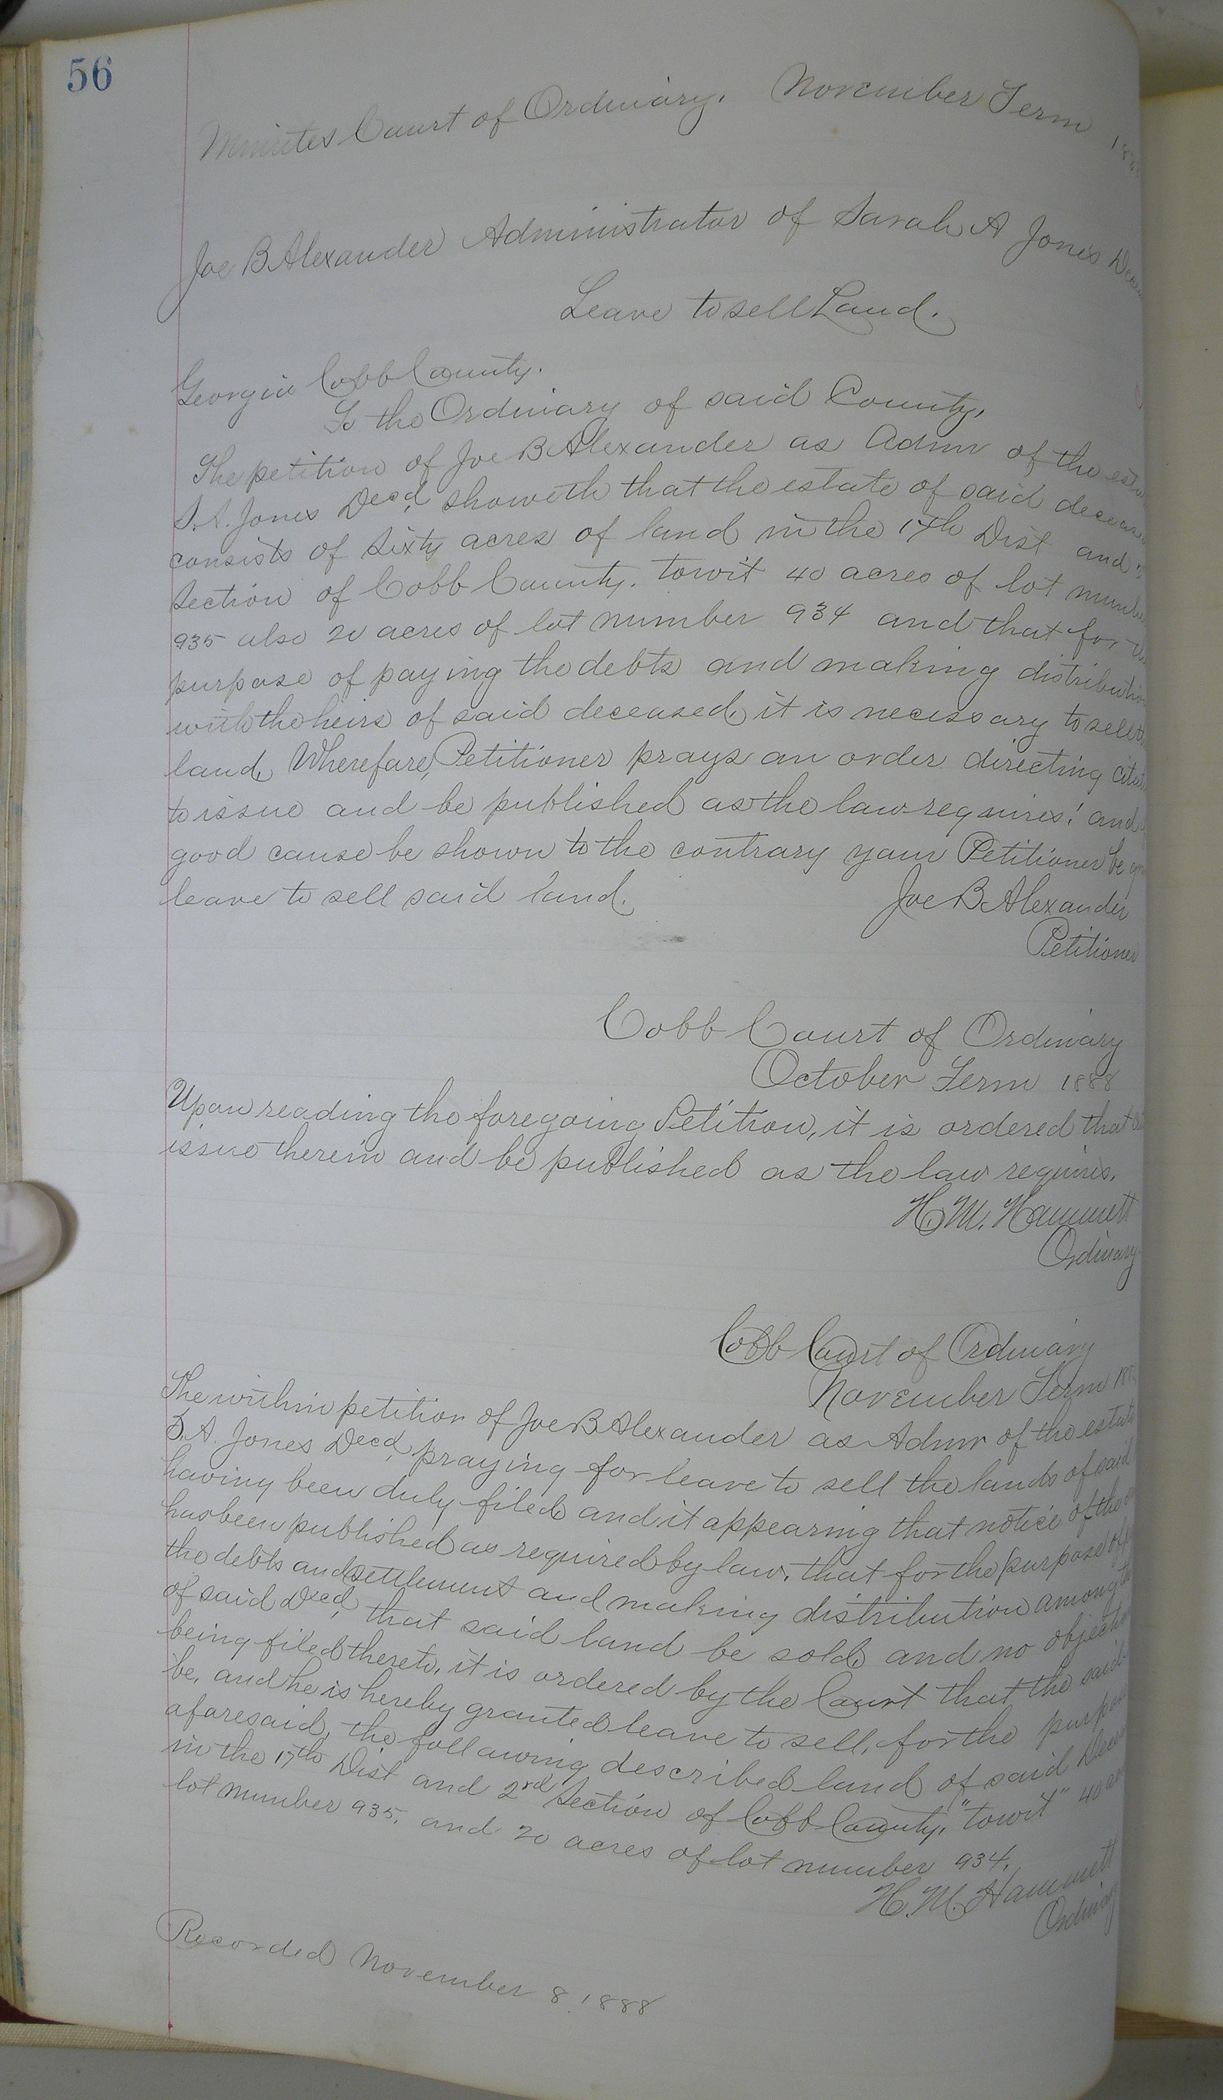 56
Minutes Court of Ordinary. November Term
Joe B Alexander Administrator of Sarah A Jones
Leave to sell Land.
Georgia Cobb County.
To the Ordinary of said County,
The petition of Joe B Alexander as Admr of the
S. A. Jones Decd, showeth that the estate of said
consists of Sixty acres of land in the 17th Dist and
Section of Cobb County. towit 40 acres of lot
935 also 20 acres of lot number 934 and that for
purpose of paying the debts and making distribution
with the heirs of said deceased, it is necessary to sell
land, Wherefare, Petitioner prays an order directing
to issue and be published as the law requires! and
good cause be shown to the contrary your Petitioner be
leave to sell said land.
Joe B Alexander
Petitioner
Cobb Court of Ordinary
October Term 1888
Upon reading the foregoing Petition, it is ordered that
issue therein and be published as the law requires.
H. M. Hammett
Ordinary
Cobb Court of Ordinary
November Term
The within petition of Joe B Alexander as Admr of the estate
S. A. Jones Decd, praying for leave to sell the lands of said
having been duly filed and it appearing that notice of the
has been published as required by law, that for the purpose of
the debts and settlement and making distribution among
of said Decd, that said land be sold, and no
being filed thereto, it is ordered by the Court that the said
be, and he is hereby granted leave to sell, for the
aforesaid, the following described land of said
in the 17th Dist and 2rd Section of Cobb County, "towit" 40
lot number 935, and 20 acres of lot number 934.
H. M. Hammett
Ordinary
Recorded November 8, 1888